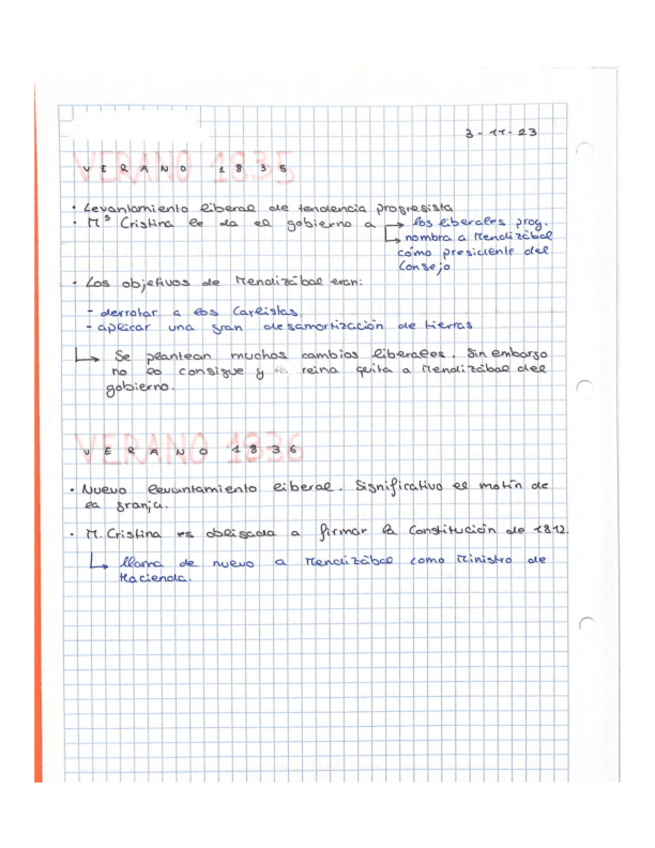 3-11-23
VERANO 1835
· Levantamiento liberal de tendencia progresista
· Mª Cristina le da el gobierno a → los liberales prog.
↳ nombra a Mendizábal
como presidente del
Consejo
· Los objetivos de Mendizábal eran:
- derrotar a los Carlistas
- aplicar una gran desamortización de tierras
↳ Se plantean muchos cambios liberales. Sin embargo
no lo consigue y la reina quita a Mendizábal del
gobierno.
VERANO 1836
· Nuevo levantamiento liberal. Significativo el motín de
la granja.
· M. Cristina es obligada a firmar la Constitución de 1812.
↳ llama de nuevo a Mendizábal como Ministro de
Hacienda.